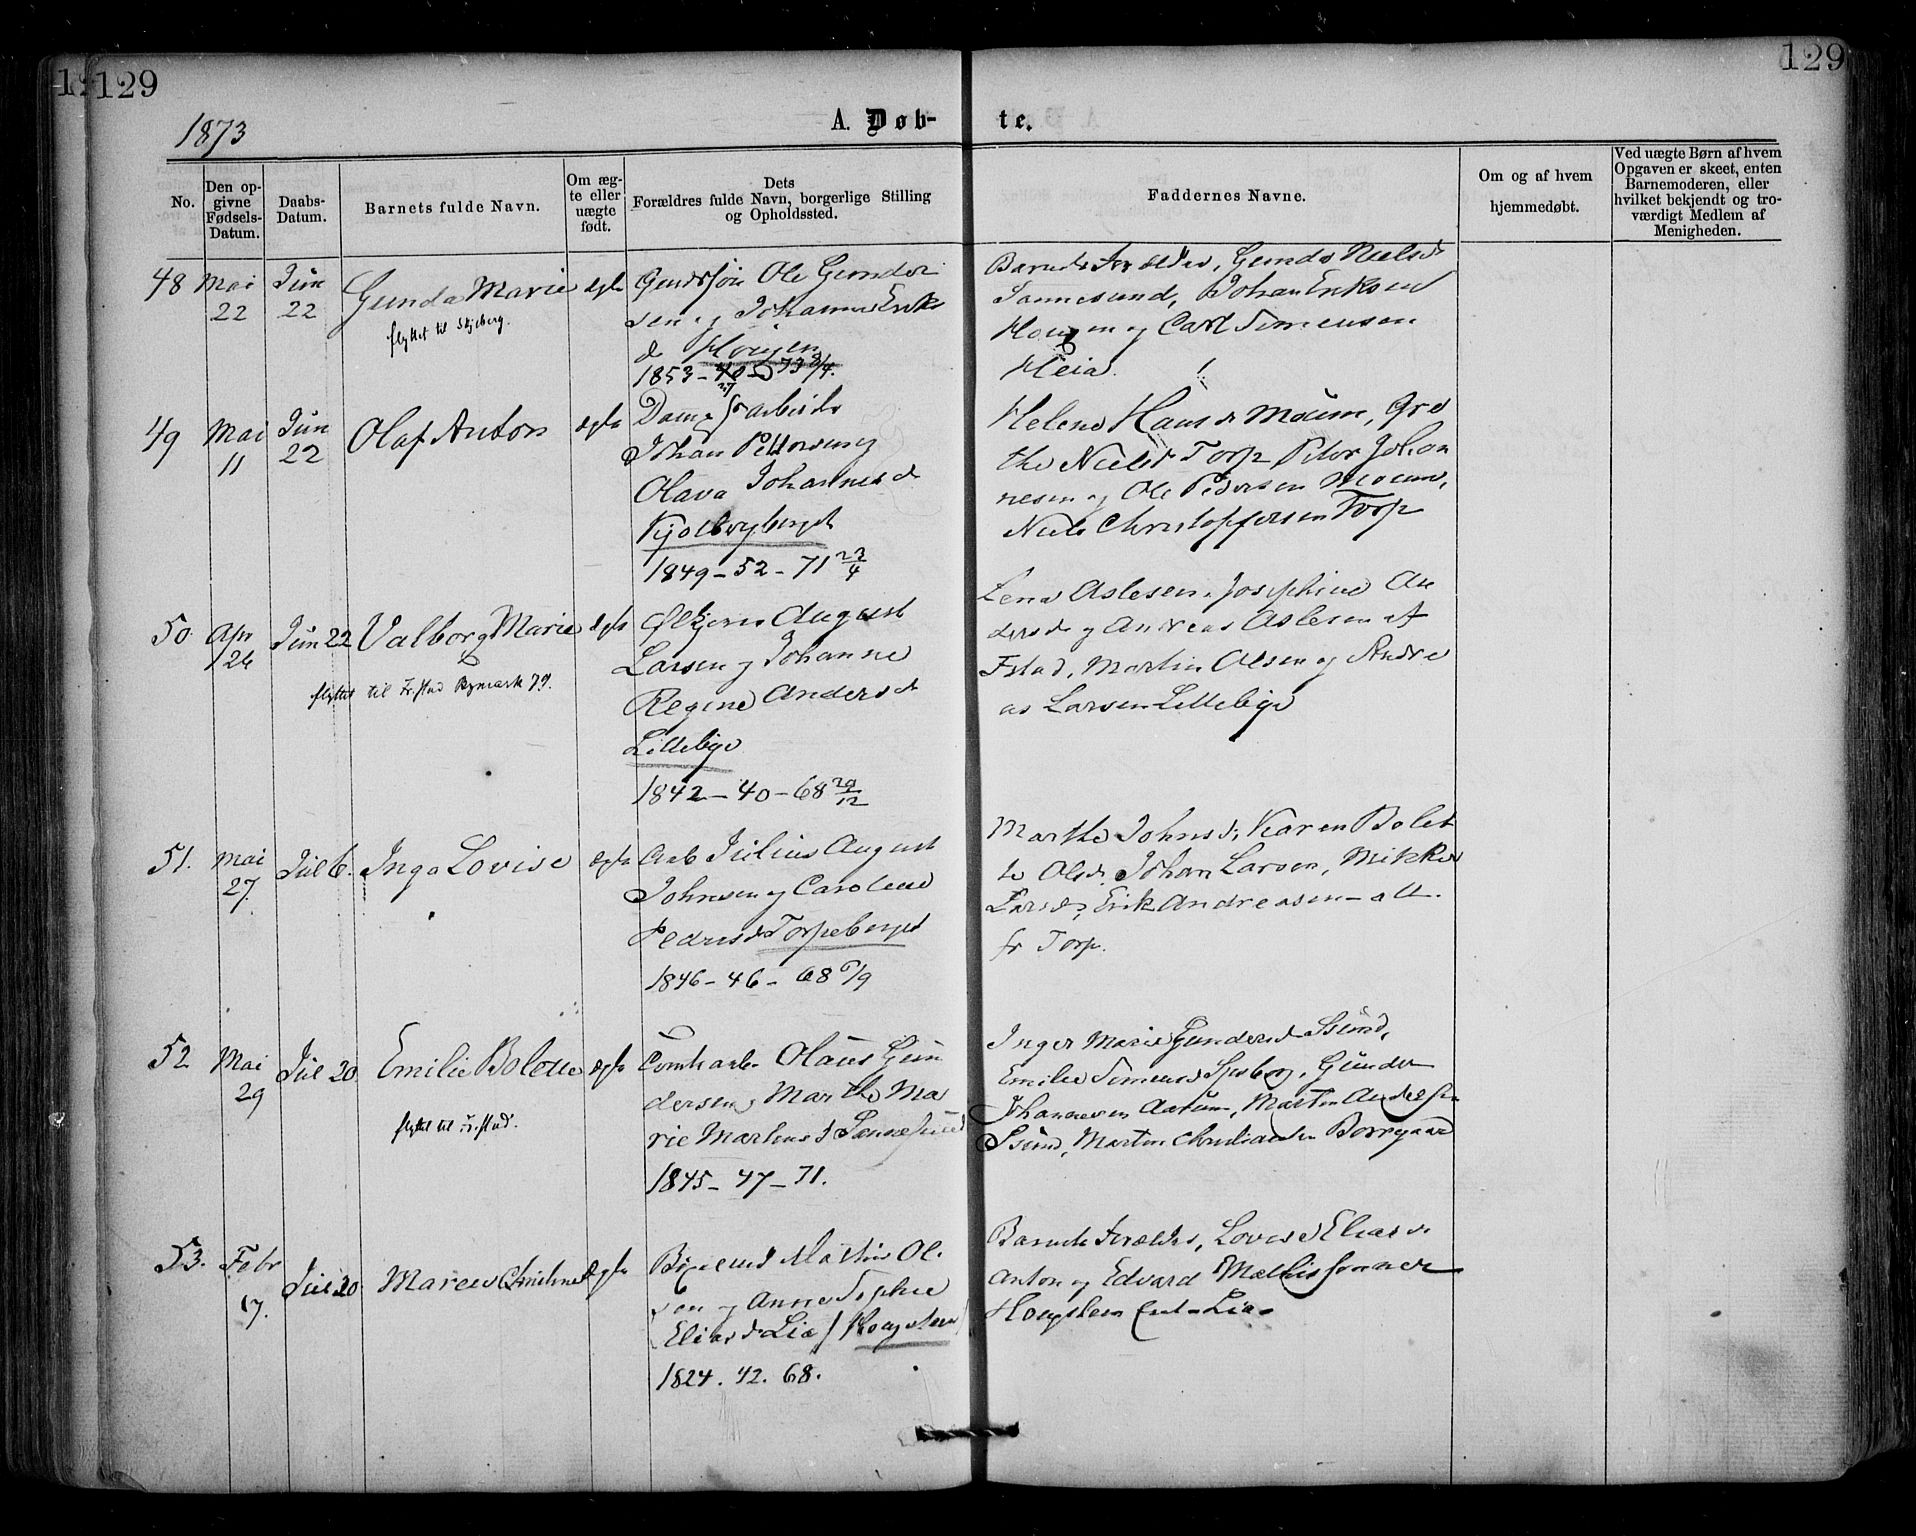 129
129
1873
A. Døb-
te.
No.
Den op-
givne
Fødsels-
Datum.
Daabs-
Datum.
Barnets fulde Navn.
Om æg-
te eller
uægte
født.
Dets
Forældres fulde Navn, borgerlige Stilling
og Opholdssted.
Faddernes Navne.
Om og af hvem
hjemmedøbt.
Ved uægte Børn af hvem
Opgaven er skeet, enten
Barnemoderen, eller
hvilket bekjendt og tro-
værdigt Medlem af
Menigheden.
48 Mai 22 Jun 22
Gunda Marie ægte
flyttet til Skjeberg.
Ole Gunder
sen og Johanne Eriks
d Hougen
1853 -
Barnets Forældre, Gunda Nielsd
Sannesund, Johan Eriksen
Hougen og Carl Simensen
Heia
49 Mai 11 Jun 22
Olaf Anton ægte
Damp arbeider
Johan Pettersen og
Olava Johannesd
Kjølbergberget
1849 - 52 - 71 23/4
Helene Hansd Moum, Gre
the Nielsd Torp Peter Johan
nesen og Ole Pedersen Moum,
Niels Christoffersen Torp
50. Apr 24 Jun 22
Valborg Marie ægte
flyttet til Fr.stad Bymark 79.
August
Larsen og Johanne
Regine Andersd
Lillebye
1842 - 40 - 68 29/12
Lena Aslesen, Josephine An
dersd og Andreas Aslesen af
Fstad, Martin Olsen og Andre
as Larsen Lillebye
51. Mai 27. Jul 6.
Inga Lovise ægte
Arb Julius August
Johnsen og Caroline
Pedersd Torpeberget
1846 - 46 - 68 6/9
Marthe Johnsd, Karen Bolet
te Olsd, Johan Larsen, Mikkel
Larsen, Erik Andreasen - alle
fr Torp.
52 Mai 29 Jul 20
Emilie Bolette ægte
flyttet til Fr.stad.
Tomtearb. Olaus Gun
dersen og Marthe Ma
rie Martinsd Sannesund
1845 - 47 - 71.
Inger Marie Gundersd Ssund,
Emilie Simensd Spsborg, Gunder
Johannesen Aarum, Martin Andersen
Ssund, Martin Christiansen Borregaard
53. Febr 17. Jul 20
Ægte
Mathis Ol
sen og Anne Sophie
Eliasd Lie / Hougsteen /
1824. 42. 68.
Barnets Forældre, Lovise Eliasd
Anton og Edvard Mathissønner
Hougsteen Lie